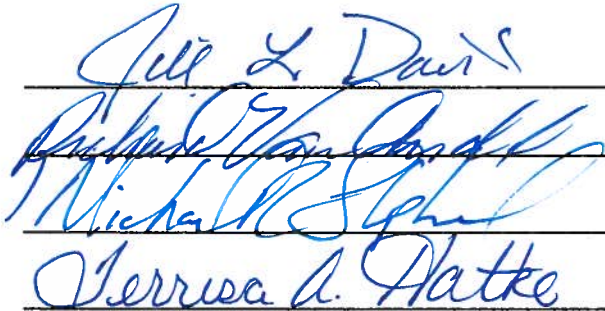 Jill L. Davis
Richard Van
Michael R
Terresa A. Hatke